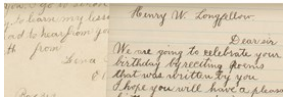 you. I go to school
g to learn my less
ad to hear from yo
th from
Lena
Henry W. Longfellow.
Dear sir
We are going to celebrate your
birthday by reciting poems
that was written by you
I hope you will have a pleasa